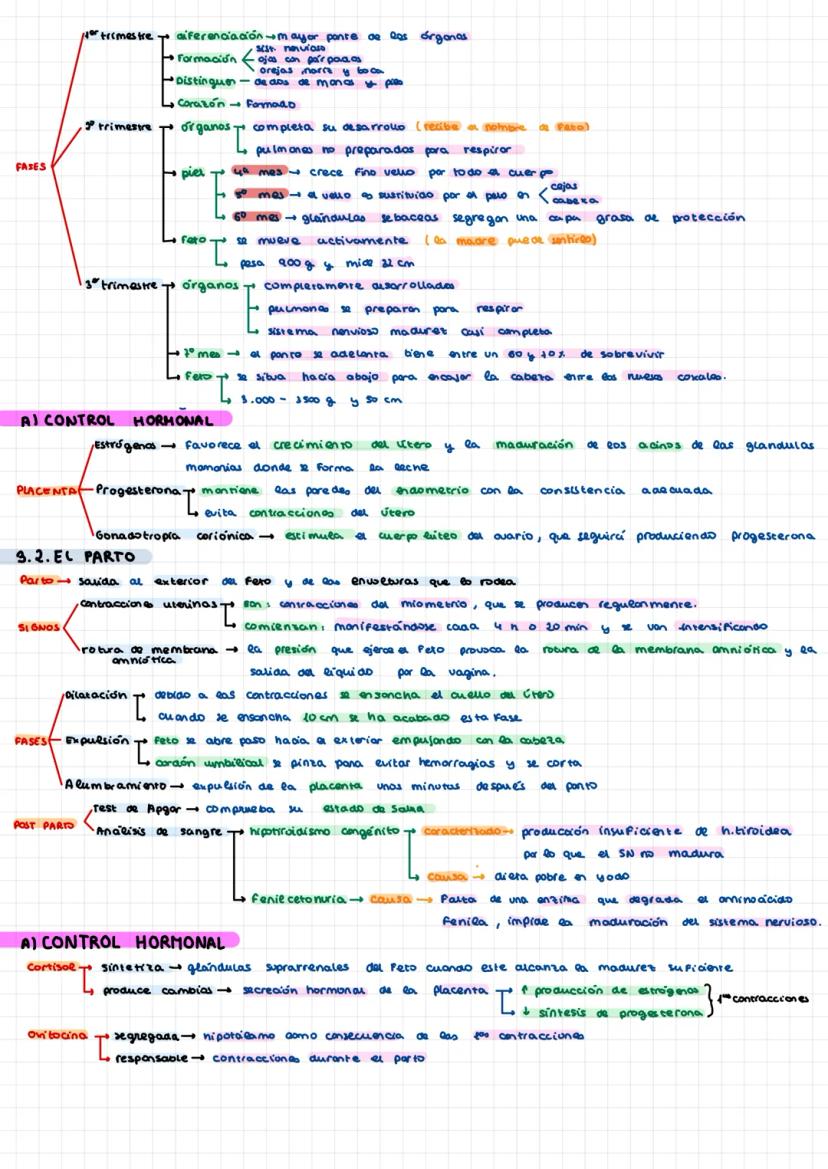 1er trimestre → diferenciación → mayor parte de los órganos
Formación < sist. nervioso
ojos con párpados
orejas, nariz y boca
Distinguen — dedos de manos y pies
Corazón → Formado
2º trimestre → órganos → completa su desarrollo (recibe el nombre de Feto)
pulmones no preparados para respirar
FASES
piel → 4º mes → crece fino vello por todo el cuerpo
5º mes → el vello es sustituido por el pelo en < cejas
cabeza
6º mes → glándulas sebaceas segregan una capa grasa de protección
Feto → se mueve activamente (la madre puede sentirlo)
pesa 900 g y mide 32 cm
3er trimestre → órganos → completamente desarrollados
pulmones se preparan para respirar
sistema nervioso madurez casi completa
7º mes → el parto se adelanta tiene entre un 60 y 70% de sobrevivir
Feto → se situa hacia abajo para encajar la cabeza entre los huesos coxales.
3.000 - 3500 g y 50 cm
A) CONTROL HORMONAL
Estrógenos → Favorece el crecimiento del útero y la maduración de los acinos de las glandulas
mamarias donde se forma la leche
PLACENTA Progesterona → mantiene las paredes del endometrio con la consistencia adecuada
evita contracciones del útero
Gonadotropia coriónica → estimula el cuerpo lúteo del ovario, que seguirá produciendo progesterona
3.2. EL PARTO
Parto → salida al exterior del Feto y de las envolturas que lo rodea
contracciones uterinas → son: contracciones del miometrio, que se producen regularmente.
SIGNOS comienzan: manifestándose cada 4 h o 20 min y se van intensificando
rotura de membrana → la presión que ejerce el Feto provoca la rotura de la membrana amniótica y la
amniótica
salida del líquido por la vagina.
Dilatación → debido a las contracciones se ensancha el cuello del útero
cuando se ensancha 10 cm se ha acabado esta Fase
FASES Expulsión → Feto se abre paso hacia el exterior empujando con la cabeza
cordón umbilical se pinza para evitar hemorragias y se corta
Alumbramiento → expulsión de la placenta unos minutos después del parto
Test de Apgar → comprueba su estado de salud
POST PARTO Análisis de sangre → hipotiroidismo congénito → caracterizado → producción insuficiente de h. tiroidea
por lo que el SN no madura
causa → dieta pobre en yodo
Fenilcetonuria → causa → Falta de una enzima que degrada el aminoácido
fenila, impide la maduración del sistema nervioso.
A) CONTROL HORMONAL
Cortisol → sintetiza → glándulas suprarrenales del Feto cuando este alcanza la madurez suficiente
produce cambios → secreción hormonal de la placenta → ↑ producción de estrógenos
↓ síntesis de progesterona } 1ras contracciones
Oxitocina → segregada → hipotálamo como consecuencia de las 1ras contracciones
responsable → contracciones durante el parto